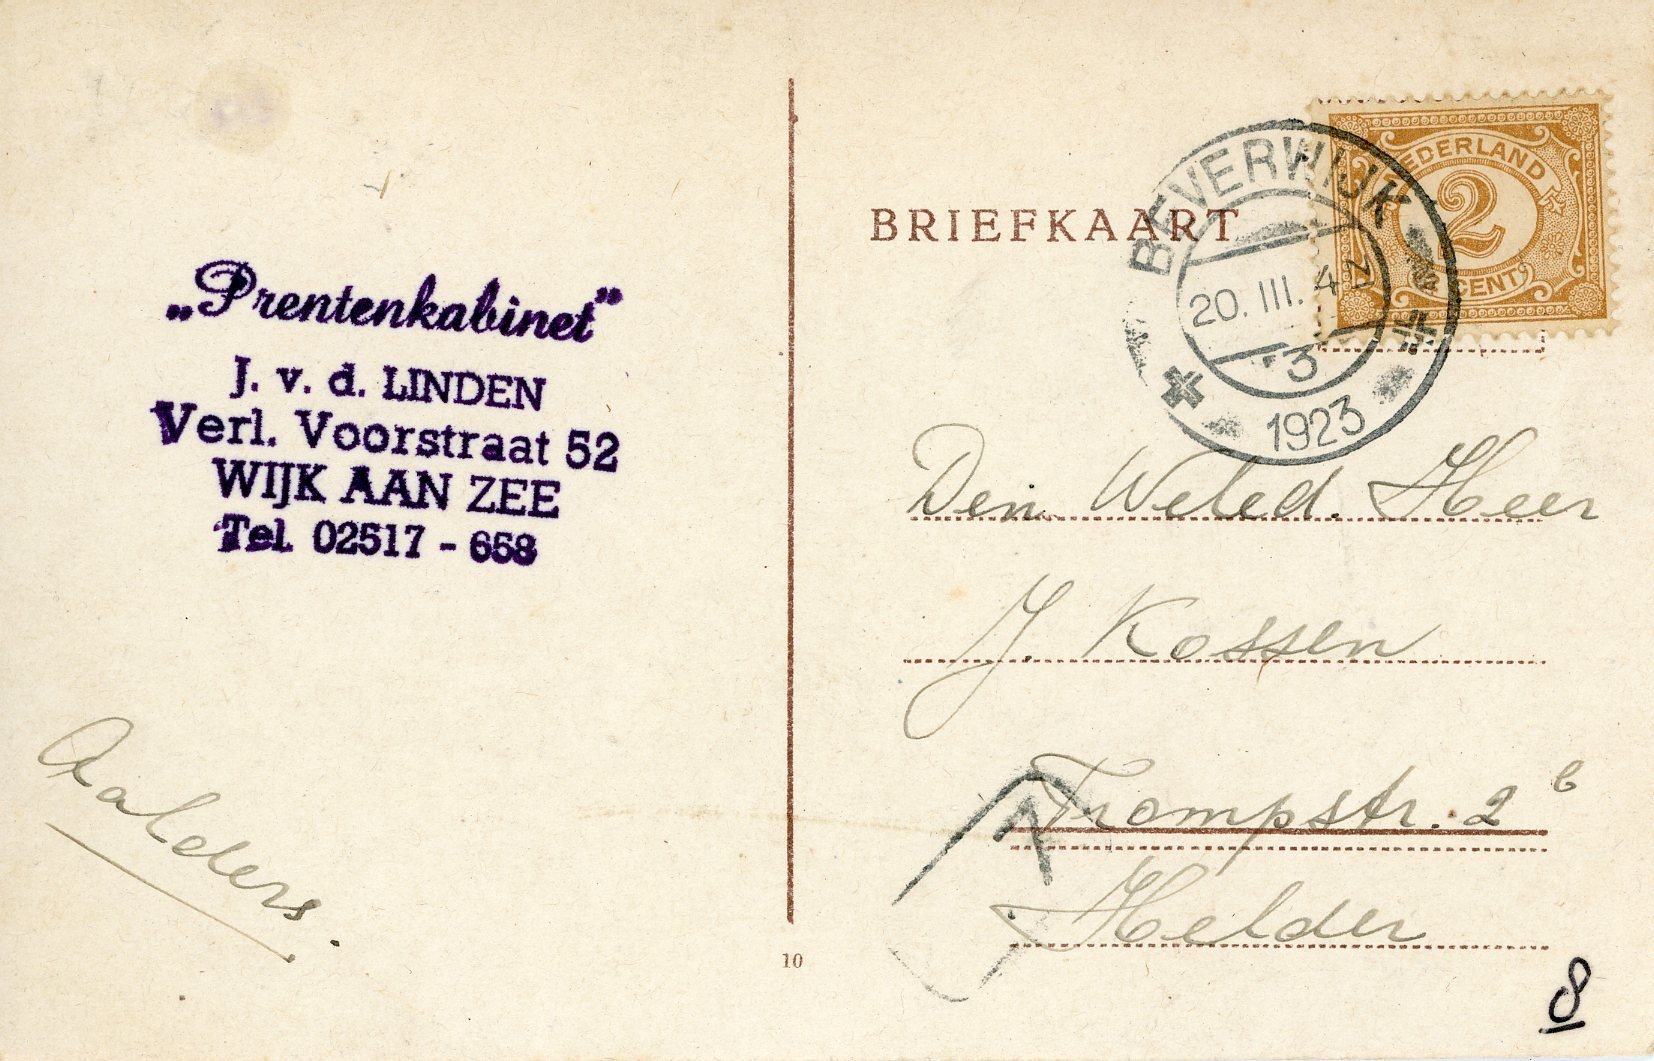 „Prentenkabinet”
J. v. d. LINDEN
Verl. Voorstraat 52
WIJK AAN ZEE
Tel. 02517 - 658
Aalders.
10
BRIEFKAART
NEDERLAND
2
CENT
BEVERWIJK
20. III. 4
3
1923
Den Weled. Heer
J. Kossen
Trompstr. 2 b
Helder
1
8